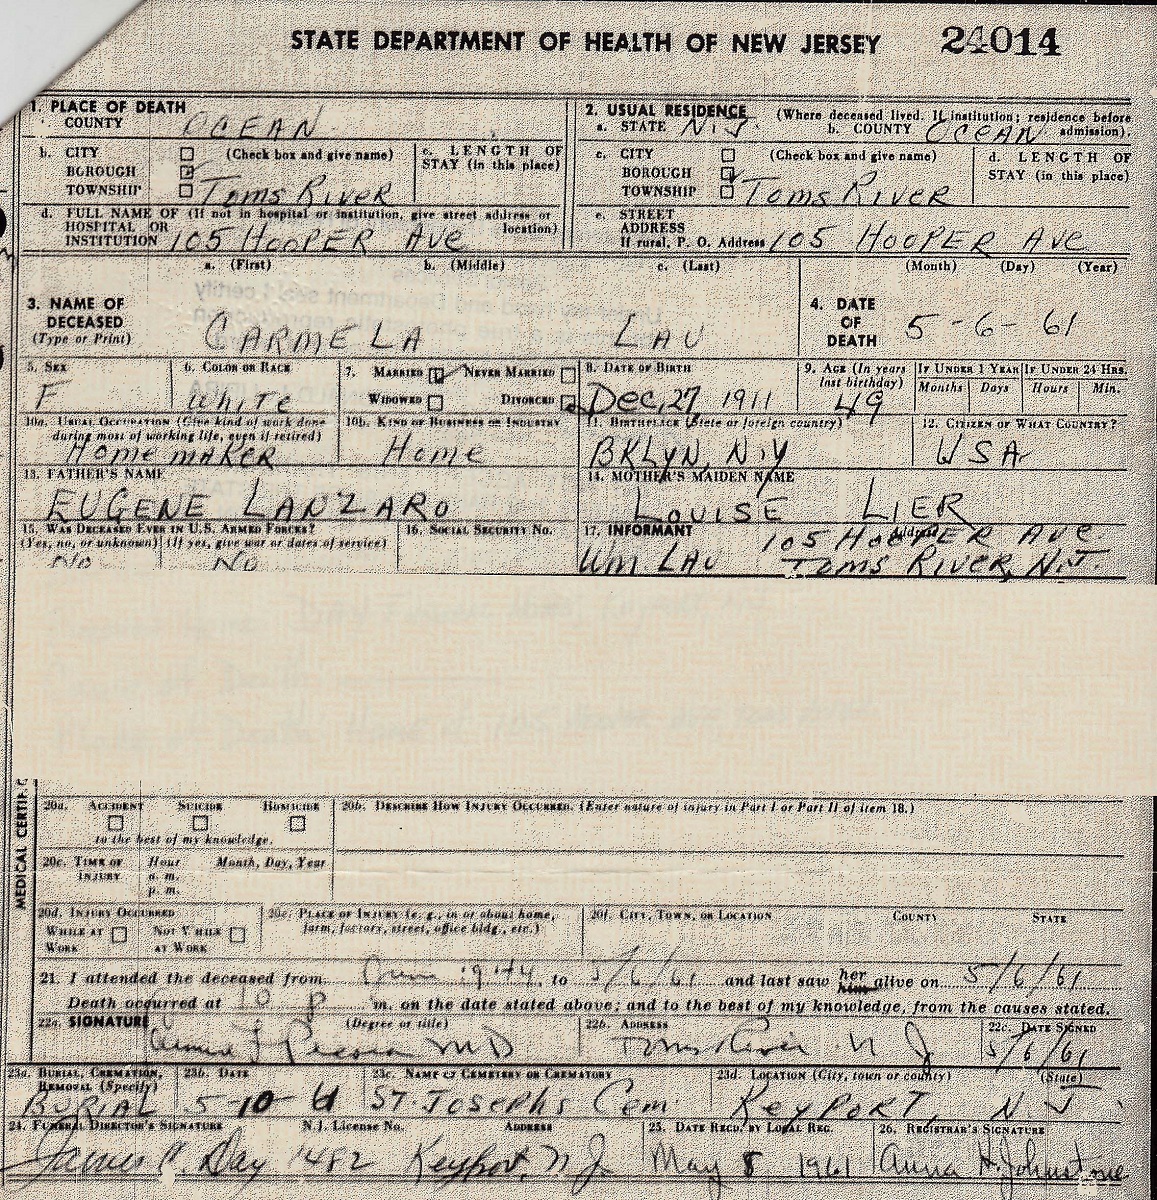 STATE DEPARTMENT OF HEALTH OF NEW JERSEY 24014
1. PLACE OF DEATH
COUNTY OCEAN
b. CITY (Check box and give name)
BOROUGH
TOWNSHIP Toms River
c. LENGTH OF
STAY (in this place)
d. FULL NAME OF (If not in hospital or institution, give street address or
HOSPITAL OR location)
INSTITUTION 105 HOOPER AVE
2. USUAL RESIDENCE (Where deceased lived. If institution; residence before
a. STATE N.J. b. COUNTY OCEAN admission).
c. CITY (Check box and give name)
BOROUGH
TOWNSHIP Toms River
d. LENGTH OF
STAY (in this place)
e. STREET
ADDRESS
If rural, P. O. Address 105 HOOPER AVE
a. (First) b. (Middle) c. (Last)
3. NAME OF
DECEASED
(Type or Print) CARMELA LAU
(Month) (Day) (Year)
4. DATE
OF
DEATH 5-6-61
5. SEX
F
6. COLOR OR RACE
White
7. MARRIED NEVER MARRIED
WIDOWED DIVORCED
8. DATE OF BIRTH
Dec, 27, 1911
9. AGE (In years
last birthday)
49
IF UNDER 1 YEAR IF UNDER 24 HRS.
Months Days Hours Min.
10a. USUAL OCCUPATION (Give kind of work done
during most of working life, even if retired)
Homemaker
10b. KIND OF BUSINESS OR INDUSTRY
Home
11. BIRTHPLACE (State or foreign country)
BKLYN, N.Y
12. CITIZEN OF WHAT COUNTRY?
USA
13. FATHER'S NAME
EUGENE LANZARO
14. MOTHER'S MAIDEN NAME
LOUISE LIER
15. WAS DECEASED EVER IN U.S. ARMED FORCES?
(Yes, no, or unknown) (If yes, give war or dates of service)
No No
16. SOCIAL SECURITY NO.
17. INFORMANT Address
105 HOOPER AVE
Wm LAU Toms River, N.J.
MEDICAL CERTIFIC
20a. ACCIDENT SUICIDE HOMICIDE
to the best of my knowledge.
20b. DESCRIBE HOW INJURY OCCURRED. (Enter nature of injury in Part I or Part II of item 18.)
20c. TIME OF Hour Month, Day, Year
INJURY a. m.
p. m.
20d. INJURY OCCURRED
WHILE AT NOT WHILE
WORK AT WORK
20e. PLACE OF INJURY (e. g., in or about home,
farm, factory, street, office bldg., etc.)
20f. CITY, TOWN, OR LOCATION COUNTY STATE
21. I attended the deceased from June 1944, to 5/6/61 and last saw her him alive on 5/6/61
Death occurred at 10 P m. on the date stated above; and to the best of my knowledge, from the causes stated.
22a. SIGNATURE (Degree or title)
MD
22b. ADDRESS
Toms River N J
22c. DATE SIGNED
5/6/61
23a. BURIAL, CREMATION,
REMOVAL (Specify)
BURIAL
23b. DATE
5-10-61
23c. NAME OF CEMETERY OR CREMATORY
ST. Josephs Cem
23d. LOCATION (City, town or county) (State)
KEYPORT, N J
24. FUNERAL DIRECTOR'S SIGNATURE N.J. License No. ADDRESS
James P. Day 1482 Keyport, N J.
25. DATE RECD. BY LOCAL REG.
May 8 1961
26. REGISTRAR'S SIGNATURE
Anna H. Johnstone